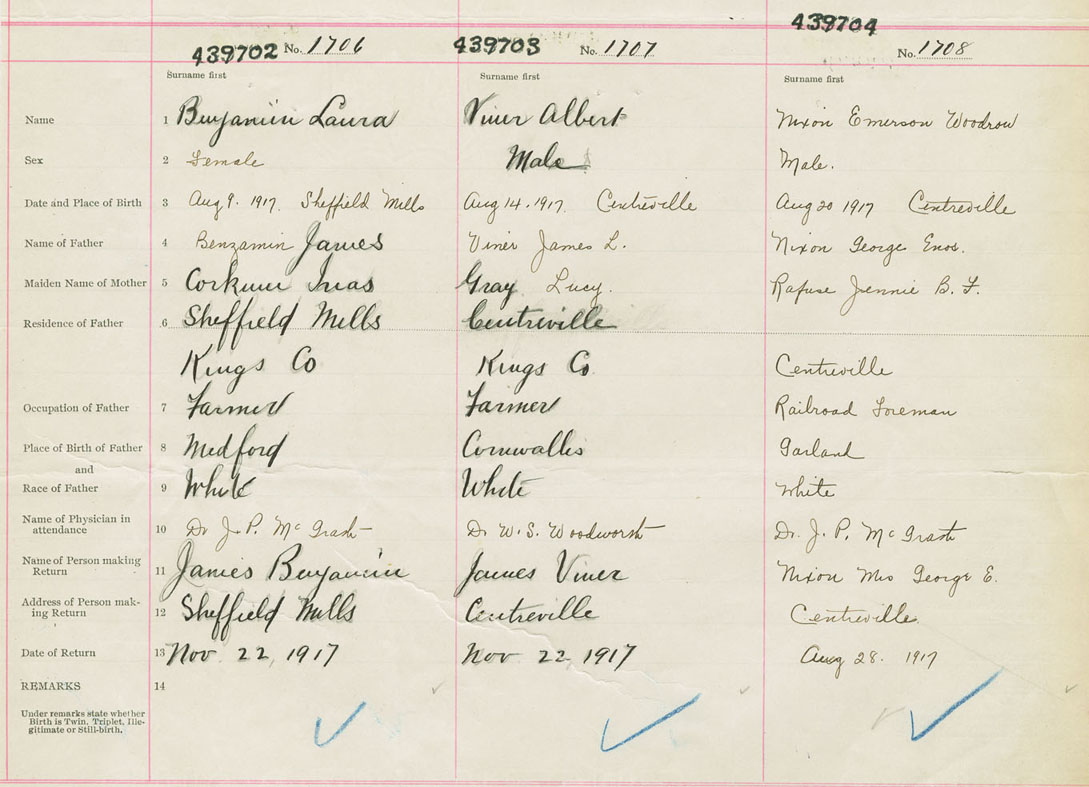 439702 No. 1706 439703 No. 1707 439704 No. 1708
Surname first Surname first Surname first
Name 1 Benjamin Laura Viner Albert Nixon Emerson Woodrow
Sex 2 Female Male Male.
Date and Place of Birth 3 Aug 9. 1917. Sheffield Mills Aug 14. 1917. Centreville Aug 20 1917 Centreville
Name of Father 4 Benzamin James Viner James L. Nixon George Enos.
Maiden Name of Mother 5 Corkum Inas Gray Lucy. Rafuse Jennie B. F.
Residence of Father 6 Sheffield Mills Centreville
Kings Co Kings Co. Centreville
Occupation of Father 7 Farmer Farmer Railroad Foreman
Place of Birth of Father 8 Medford Cornwallis Garland
and
Race of Father 9 White White White
Name of Physician in
attendance 10 Dr J. P. McGrath Dr W. S. Woodworth Dr. J. P. McGrath
Name of Person making
Return 11 James Benjamin James Viner Nixon Mrs George E.
Address of Person mak-
ing Return 12 Sheffield Mills Centreville Centreville.
Date of Return 13 Nov. 22, 1917 Nov 22 1917 Aug 28. 1917
REMARKS 14
Under remarks state whether
Birth is Twin, Triplet, Ille-
gitimate or Still-birth.